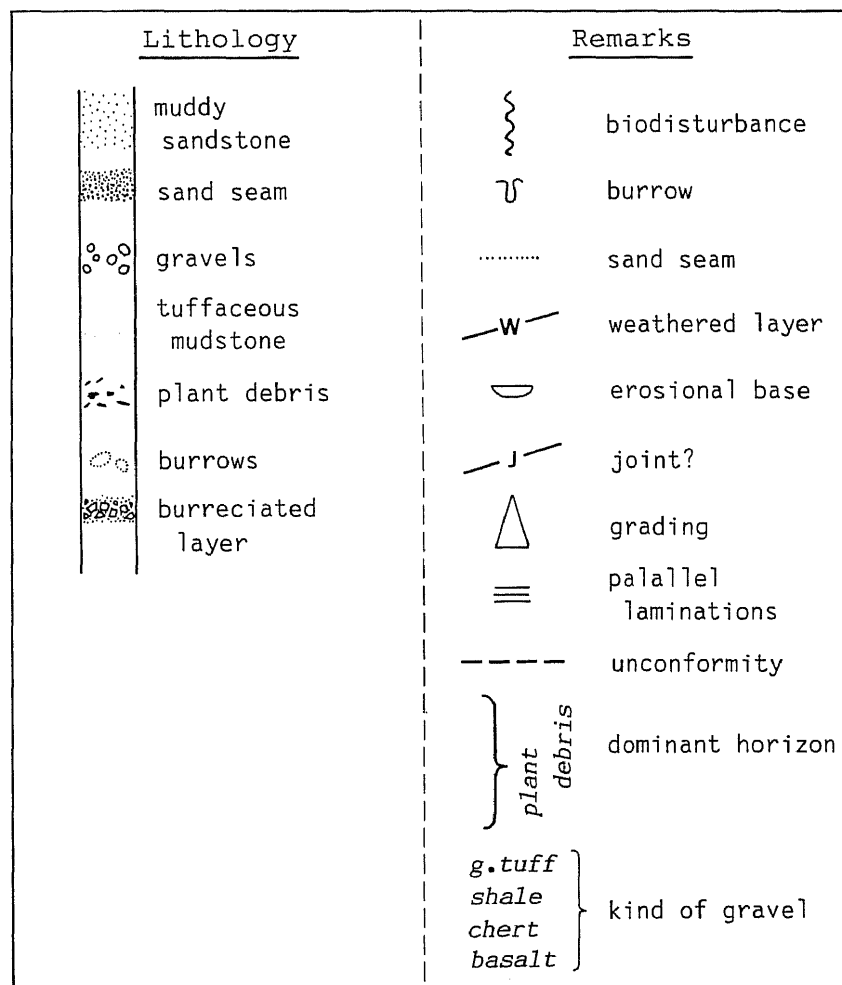 Lithology
muddy
sandstone
sand seam
gravels
tuffaceous
mudstone
plant debris
burrows
burreciated
layer
Remarks
biodisturbance
burrow
sand seam
W
weathered layer
erosional base
J
joint?
grading
palallel
laminations
unconformity
plant
debris
dominant horizon
g.tuff
shale
chert
basalt
kind of gravel